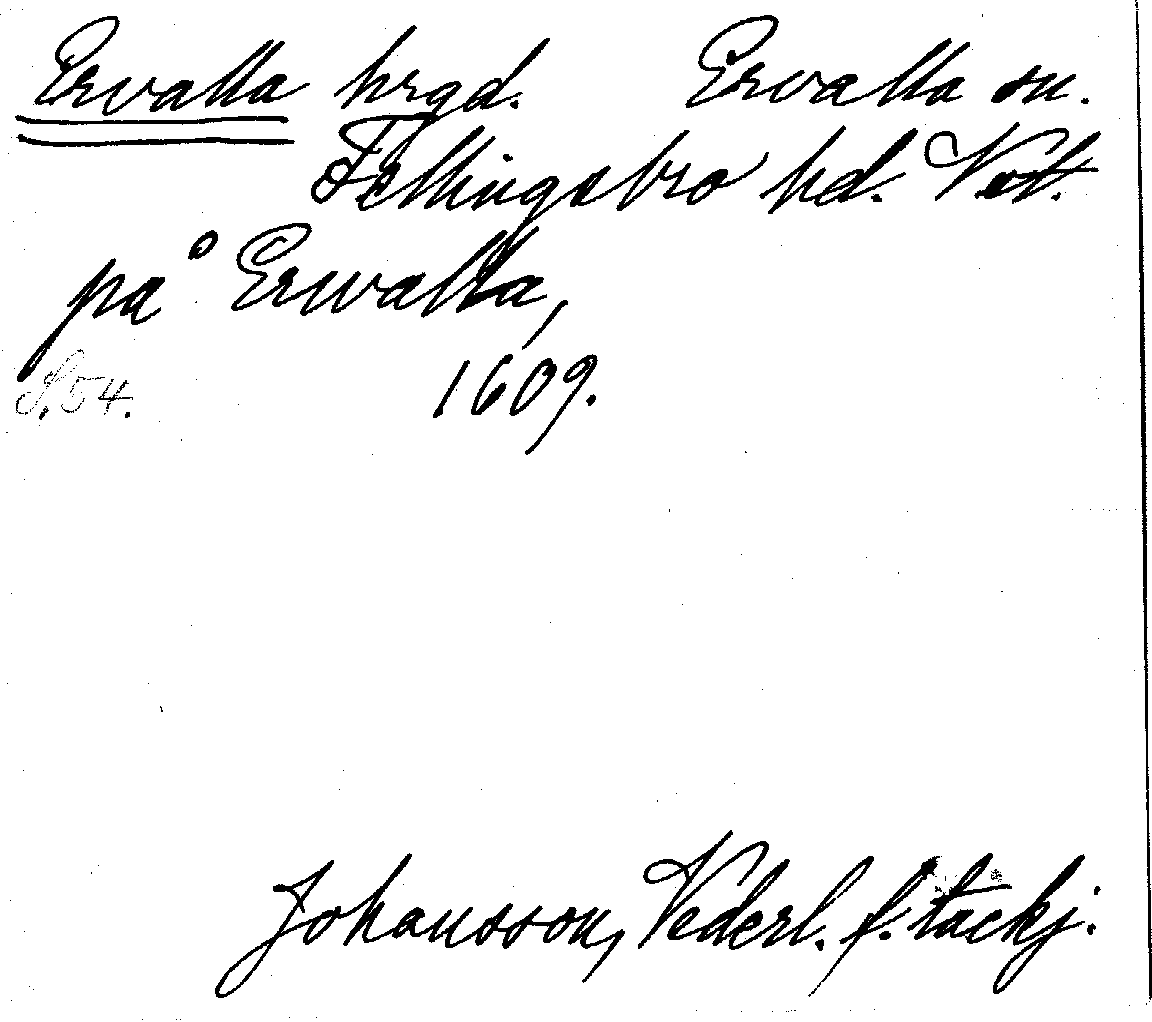 Ervalla hrgd. Ervalla sn.
Fellingsbro hd. Vstl.
på Ervalla,
S. 54. 1609.
Johansson, Vederl. f. tackj.